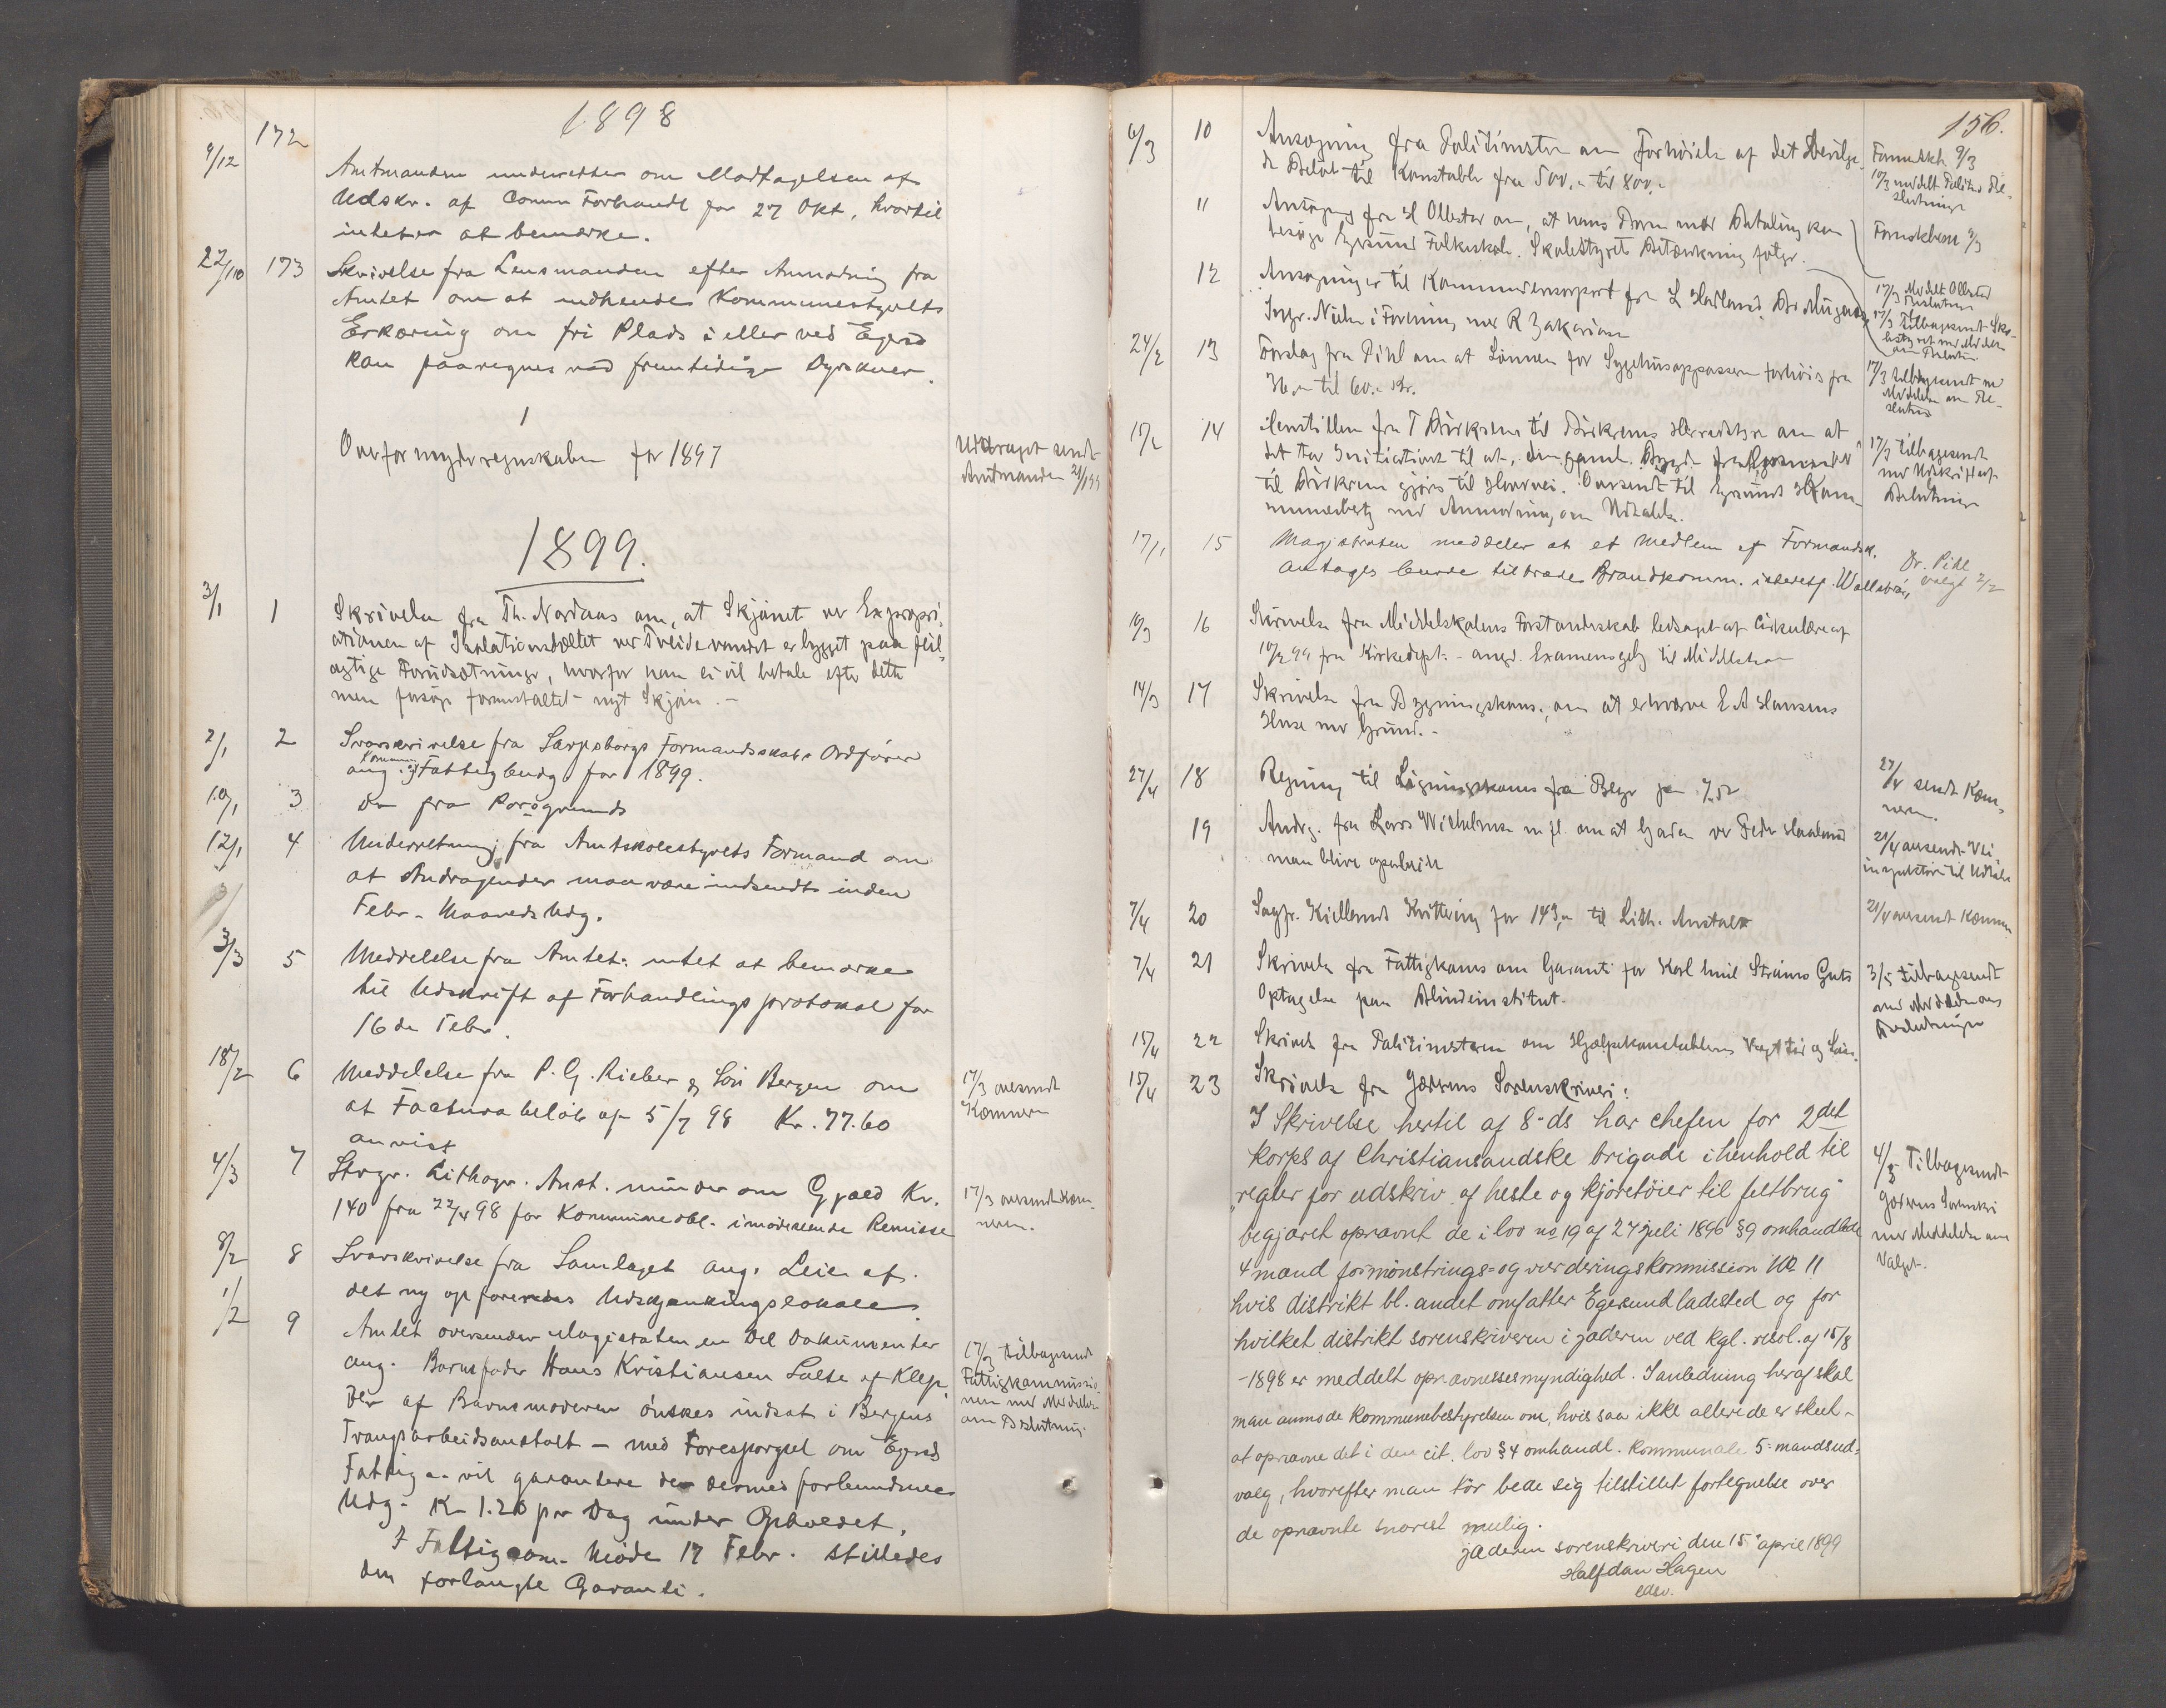 1898
9/12 172
Amtmanden underretter om Modtagelsen af
Udskr. af Comm Forhandl for 27 Okt, hvortil
intet er at bemærke.
22/10 173 Skrivelse fra Lensmanden efter Anmodning fra
Amtet om at indhendes Kommunestyrelts
Erkæring om fri Plads i eller ved Egersd
kan paaregnes ved fremtidige Dyrskuer.
1
Overformynderregnskaben for 1897
Uddraget sendt
Amtmanden 21/1 99
1899.
3/1 1 Skrivelse fra Th. Nordaas om, at Skjønnet ved Expropri-
ationen af Isolationsbæltet ved Tveidevandet er bygget paa feil-
agtige Forudsætninger, hvorfor han ei vil betale efter dette
men forsøge foranstaltet nyt Skjøn. -
2/1 2 Svarskrivelse fra Sarpsborgs Formandsskabs Ordfører
ang. Kommune og Fattigbudg. for 1899.
10/1 3 Do fra Porsgrunds
12/1 4 Underretning fra Amtskolestyrets Formand om
at Andragender maa være indsendt inden
Febr. Maaneds Udg.
3/3 5 Meddelelse fra Amtet: intet at bemærke
til Udskrift af Forhandlingsprotokol for
16 de Febr.
18/2 6 Meddelelse fra P. G. Rieber & Søn Bergen om
at Facturabeløb af 5/7 98 Kr. 77.60
anvist
17/3 oversendt
Kæmneren
4/3 7 Stvgr. Lithogr. Anst. minder om Gjæld Kr.
140 fra 22/4 98 for Kommuneobl. imødeseende Remisse
17/3 oversendt Kæm-
neren.
8/2 8 Svarskrivelse fra Samlaget ang. Leie af
det ny opførendes Udskjænkningslokale
1/2 9 Amtet oversender Magistraten en Del Dokumenter
ang. Barnefader Hans Kristiansen Salte af Klep
der af Barnemoderen ønskes indsat i Bergens
Tvangsarbeidsanstalt - med Forespørgsel om Egersds
Fattigv. vil garantere de dermed forbundne
Udg. Kr 1.20 pr Dag under Opholdet.
I Fattigcom. Møde 17 Febr. stilledes
den forlangte Garanti.
17/3 tilbagesendt
Fattigkommissio-
nen med Meddelelse
om Beslutning.
156.
6/3 10 Ansøgning fra Politimster om Forhøielse af det bevilge-
de Beløb til Konstabler fra 500,- til 800,-
Formdskb 9/3
10/3 meddelt Politiet Be-
slutningen
11 Ansøgning fra H Ollestad om, at hans Børn mod Betaling kan
besøge Egersund Folkeskole. Skolestyrets Betænkning følger.
Formskbem 9/3
17/3 Meddelt Ollestad
Beslutnin
17/3 Tilbagesendt Sko-
lestyret med Meddel
om Beslutn
12 Ansøgninger til Kommunensorport fra L Hadland,
Ingr. Nielsen i Forening med R Zakariasen
24/2 13 Forslag fra Pihl om at Lønnen for Sygehusoppasseren forhøies fra
36,- til 60,- Kr.
17/3 tilbagesendt m
Meddelelse om Be-
slutnin
15/2 14 Henstillen fra T Birkrem til Birkrems Herredstyre om at
det tar Initiativet til at, den gamle Bygdevei fra Egersund
til Birkrem gjøres til Hovedvei. Oversendt til Egersunds Kom-
munebesty med Anmodning om Udtalelse.
17/3 tilbagesendt
med Udskrift af
Beslutninge
17/1 15 Magistraten meddeler at et Medlem af Formandsk.
antages burde tiltræde Brandkomm. istedetf. Wallebræk,
Dr. Pihl
valgt 2/2
10/3 16 Skrivelse fra Middelskolens Forstanderskab ledsaget af Cirkulære af
10/2 99 fra Kirkedept. - angd. Examensgeby til Middelskolen
14/3 17 Skrivelse fra Bygningskoms. om at erhværve E A Hansens
Huse med Grund. -
27/4 18 Regning til Ligningskoms fra Beyer pa 7,52
27/4 sendt Kæm-
neren.
19 Andrg. fra Lars Wilhelmsen m fl. om at Gaden ved Peder Haaland
maa blive oparbeidt
21/4 oversendt Vei-
inspektøren til Udtalelse
7/4 20 Sagfr. Kiellands Kvittering for 143,- til Lith. Anstalt
21/4 oversendt Kæmneren
7/4 21 Skrivelse fra Fattigkoms om Garanti for Karl Emil Strøms Guts
Optagelse paa Blindeinstitut.
3/5 tilbagesendt
med Meddelelse om
Beslutninge
15/4 22 Skrivelse fra Politimesteren om Hjælpekonstablens Vagttid og Løn.
15/4 23 Skrivelse fra Jæderens Sorenskriveri:
I Skrivelse hertil af 8-ds har chefen for 2det
korps af Christiansandske brigade i henhold til
"regler for udskriv. af heste og kjøretøier til feltbrug"
begjæret opnævnt de i lov no 19 af 27 juli 1896 §9 omhandlede
4 mand for mønstrings- og vurderingskommission No 11
hvis distrikt bl. andet omfatter Egersund ladested og for
hvilket distrikt sorenskriveren i jæderen ved kgl. resol. af 15/8
-1898 er meddelt opnævnelsesmyndighed. I anledning heraf skal
man anmode kommunebestyrelsen om, hvis saa ikke allerede er skeet -
at opnævne det i den cit. lov §4 omhandl. kommunale 5-mandsud-
valg, hvorefter man tør bede sig tilstillet fortegnelse over
de opnævnte snarest mulig.
jæderen sorenskriveri den 15 april 1899
Halfdan Hagen
edsv.
4/5 Tilbagesendt
Jæderens Sorenskri
med Meddelelse om
Valget.